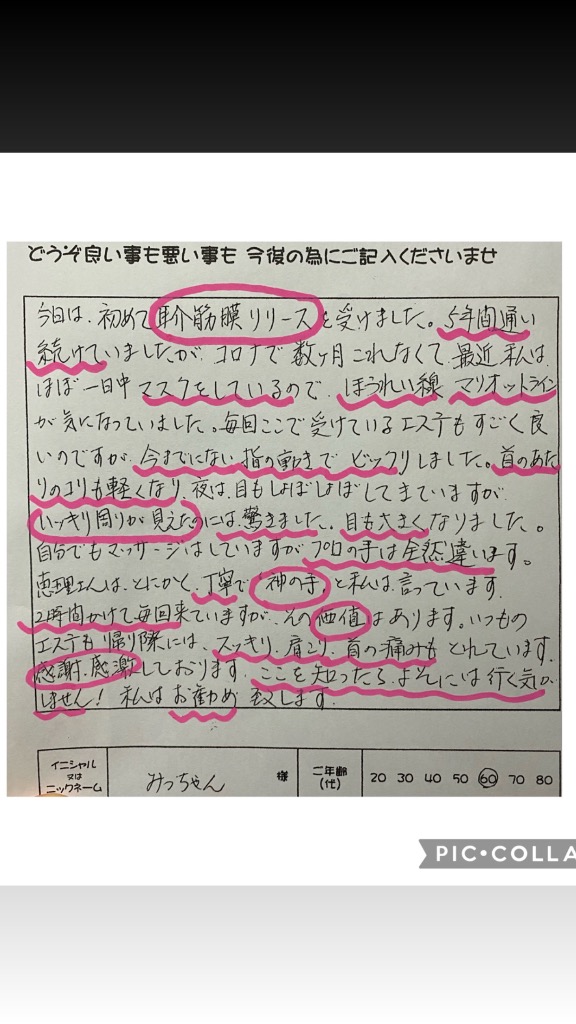 どうぞ良い事も悪い事も 今後の為にご記入くださいませ
今日は、初めて耳介筋膜リリースを受けました。5年間通い
続けていましたが、コロナで数ヶ月これなくて、最近私は、
ほぼ一日中マスクをしているので、ほうれい線 マリオットライン
が気になっていました。毎回ここで受けているエステもすごく良
いのですが、今までにない指の動きでビックリしました。首のあた
りのコリも軽くなり、夜は、目もしょぼしょぼしてきていますが、
くっきり周りが見えたのには、驚きました。目も大きくなりました。
自分でもマッサージはしていますが、プロの手は全然違います。
恵理さんは、とにかく、丁寧で「神の手」と私は、言っています。
2時間かけて毎回来ていますが、その価値はあります。いつもの
エステも帰り際には、スッキリ、肩こり、首の痛みもとれています。
感謝、感激しております。ここを知ったら、よそには行く気が
しません！私はお勧め致します。
イニシャル
又は
ニックネーム
みっちゃん 様
ご年齢
(代)
20 30 40 50 60 70 80
PIC•COLLA